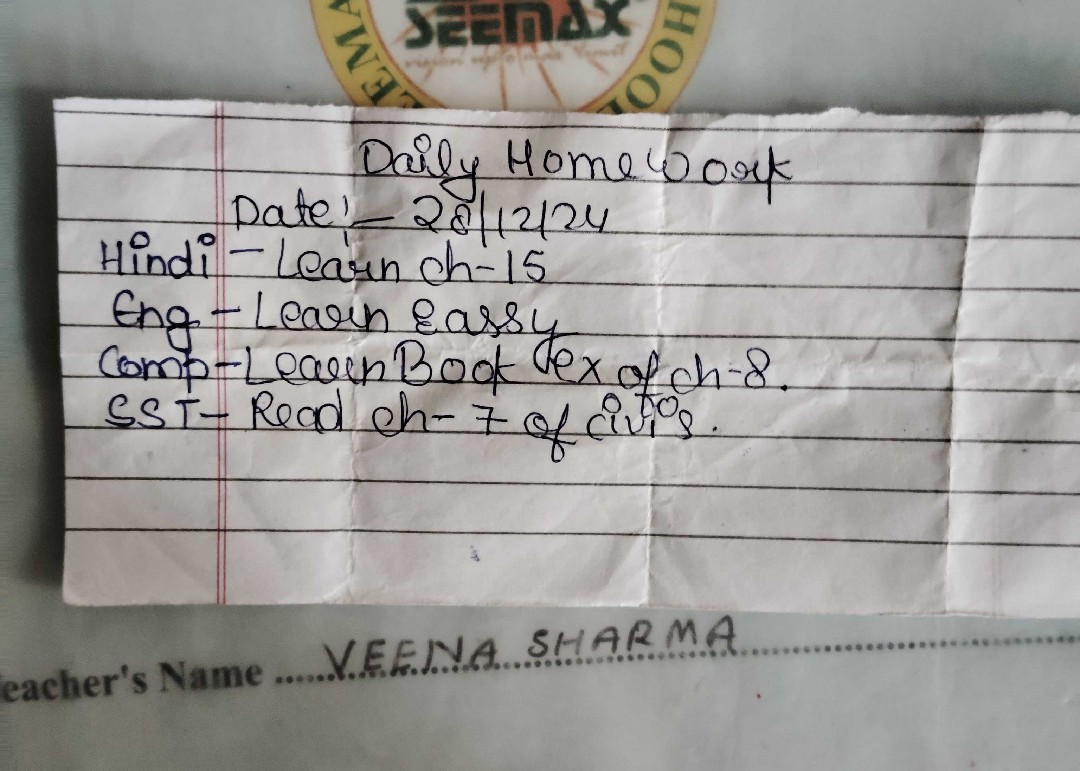 SEEMAX
Daily Homework
Date:- 28/12/24
Hindi - Learn ch-15
Eng - Learn Eassy
Comp - Learn Book ex of ch-8.
SST - Read ch-7 of civics.
eacher's Name ..... VEENA SHARMA